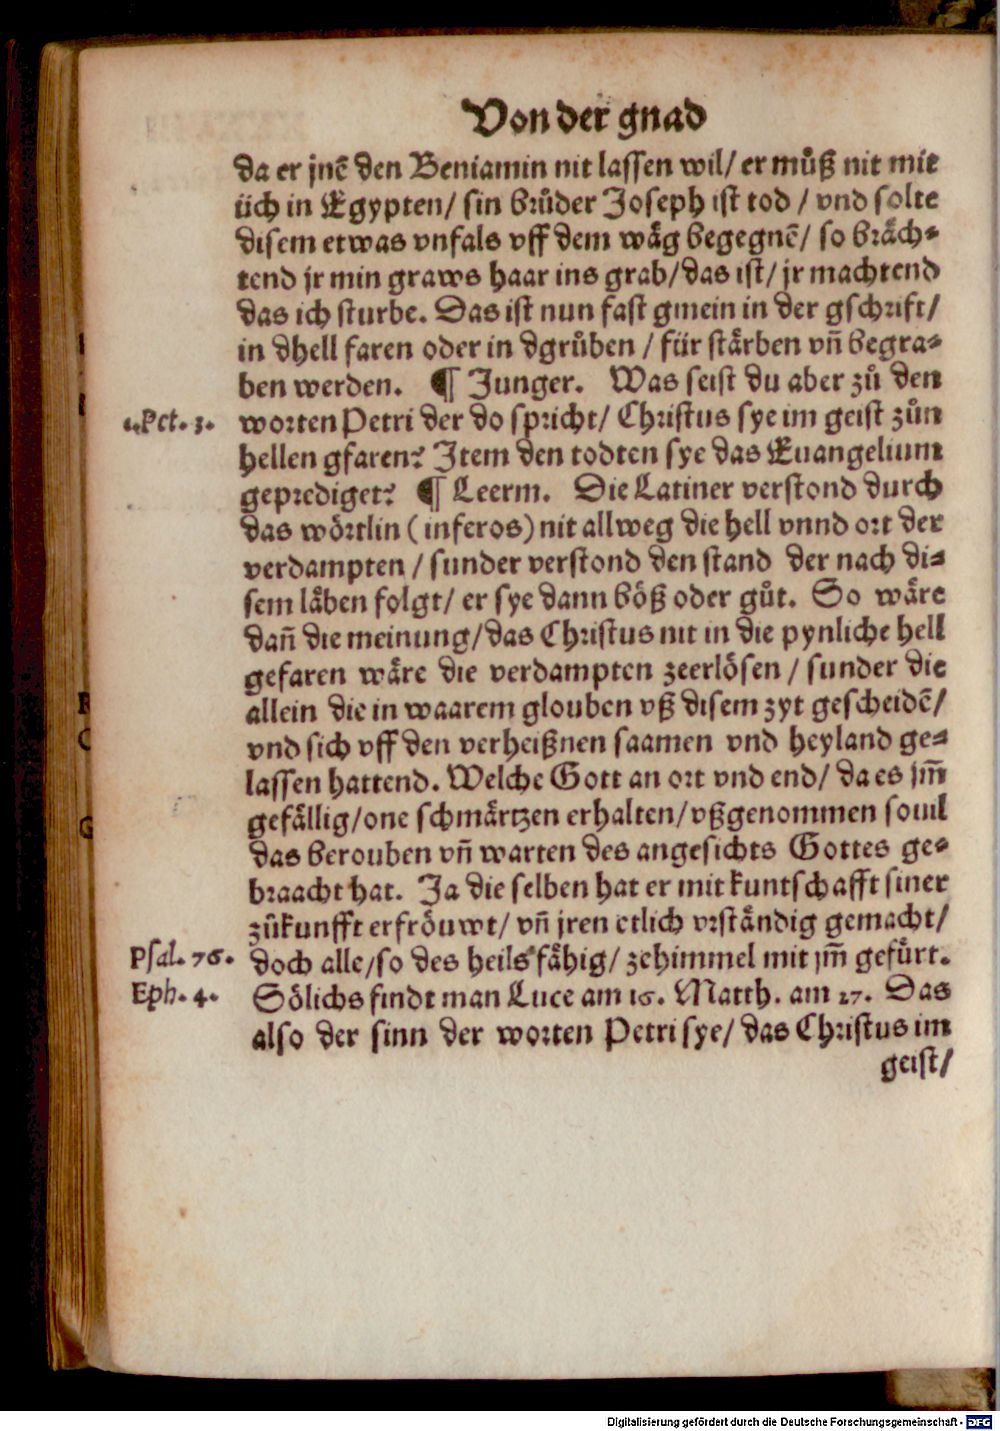 Von der gnad
da er jnē den Beniamin nit lassen wil/ er můß nit mit
üch in Egypten/ sin brůder Joseph ist tod / vnd solte
disem etwas vnfals vff dem wäg begegnē/ so bräch⸗
tend jr min graws haar ins grab/das ist/ jr machtend
das ich sturbe. Das ist nun fast gmein in der gschrift/
in dhell faren oder in dgrůben / für stärben vn̄ begra⸗
ben werden. ¶ Junger. Was seist du aber zů den
1.Pet. 3. worten Petri der do spricht/ Christus sye im geist zůn
hellen gfaren? Item den todten sye das Euangelium
geprediget? ¶ Leerm. Die Latiner verstond durch
das wörtlin (inferos) nit allweg die hell vnnd ort der
verdampten / sunder verstond den stand der nach di⸗
sem läben folgt/ er sye dann böß oder gůt. So wäre
dan̄ die meinung/das Christus nit in die pynliche hell
gefaren wäre die verdampten zeerlösen / sunder die
allein die in waarem glouben vß disem zyt gescheidē/
vnd sich vff den verheißnen saamen vnd heyland ge⸗
lassen hattend. Welche Gott an ort vnd end/ da es jm̄
gefällig/one schmärtzen erhalten/vßgenommen souil
das berouben vn̄ warten des angesichts Gottes ge⸗
braacht hat. Ja die selben hat er mit kuntschafft siner
zůkunfft erfröuwt/ vn̄ jren etlich vrständig gemacht/
Psal. 76. doch alle/so des heils fähig/ zehimmel mit jm̄ gefürt.
Eph. 4. Sölichs findt man Luce am 16. Matth. am 27. Das
also der sinn der worten Petri sye/ das Christus im
geist/
Digitalisierung gefördert durch die Deutsche Forschungsgemeinschaft - DFG